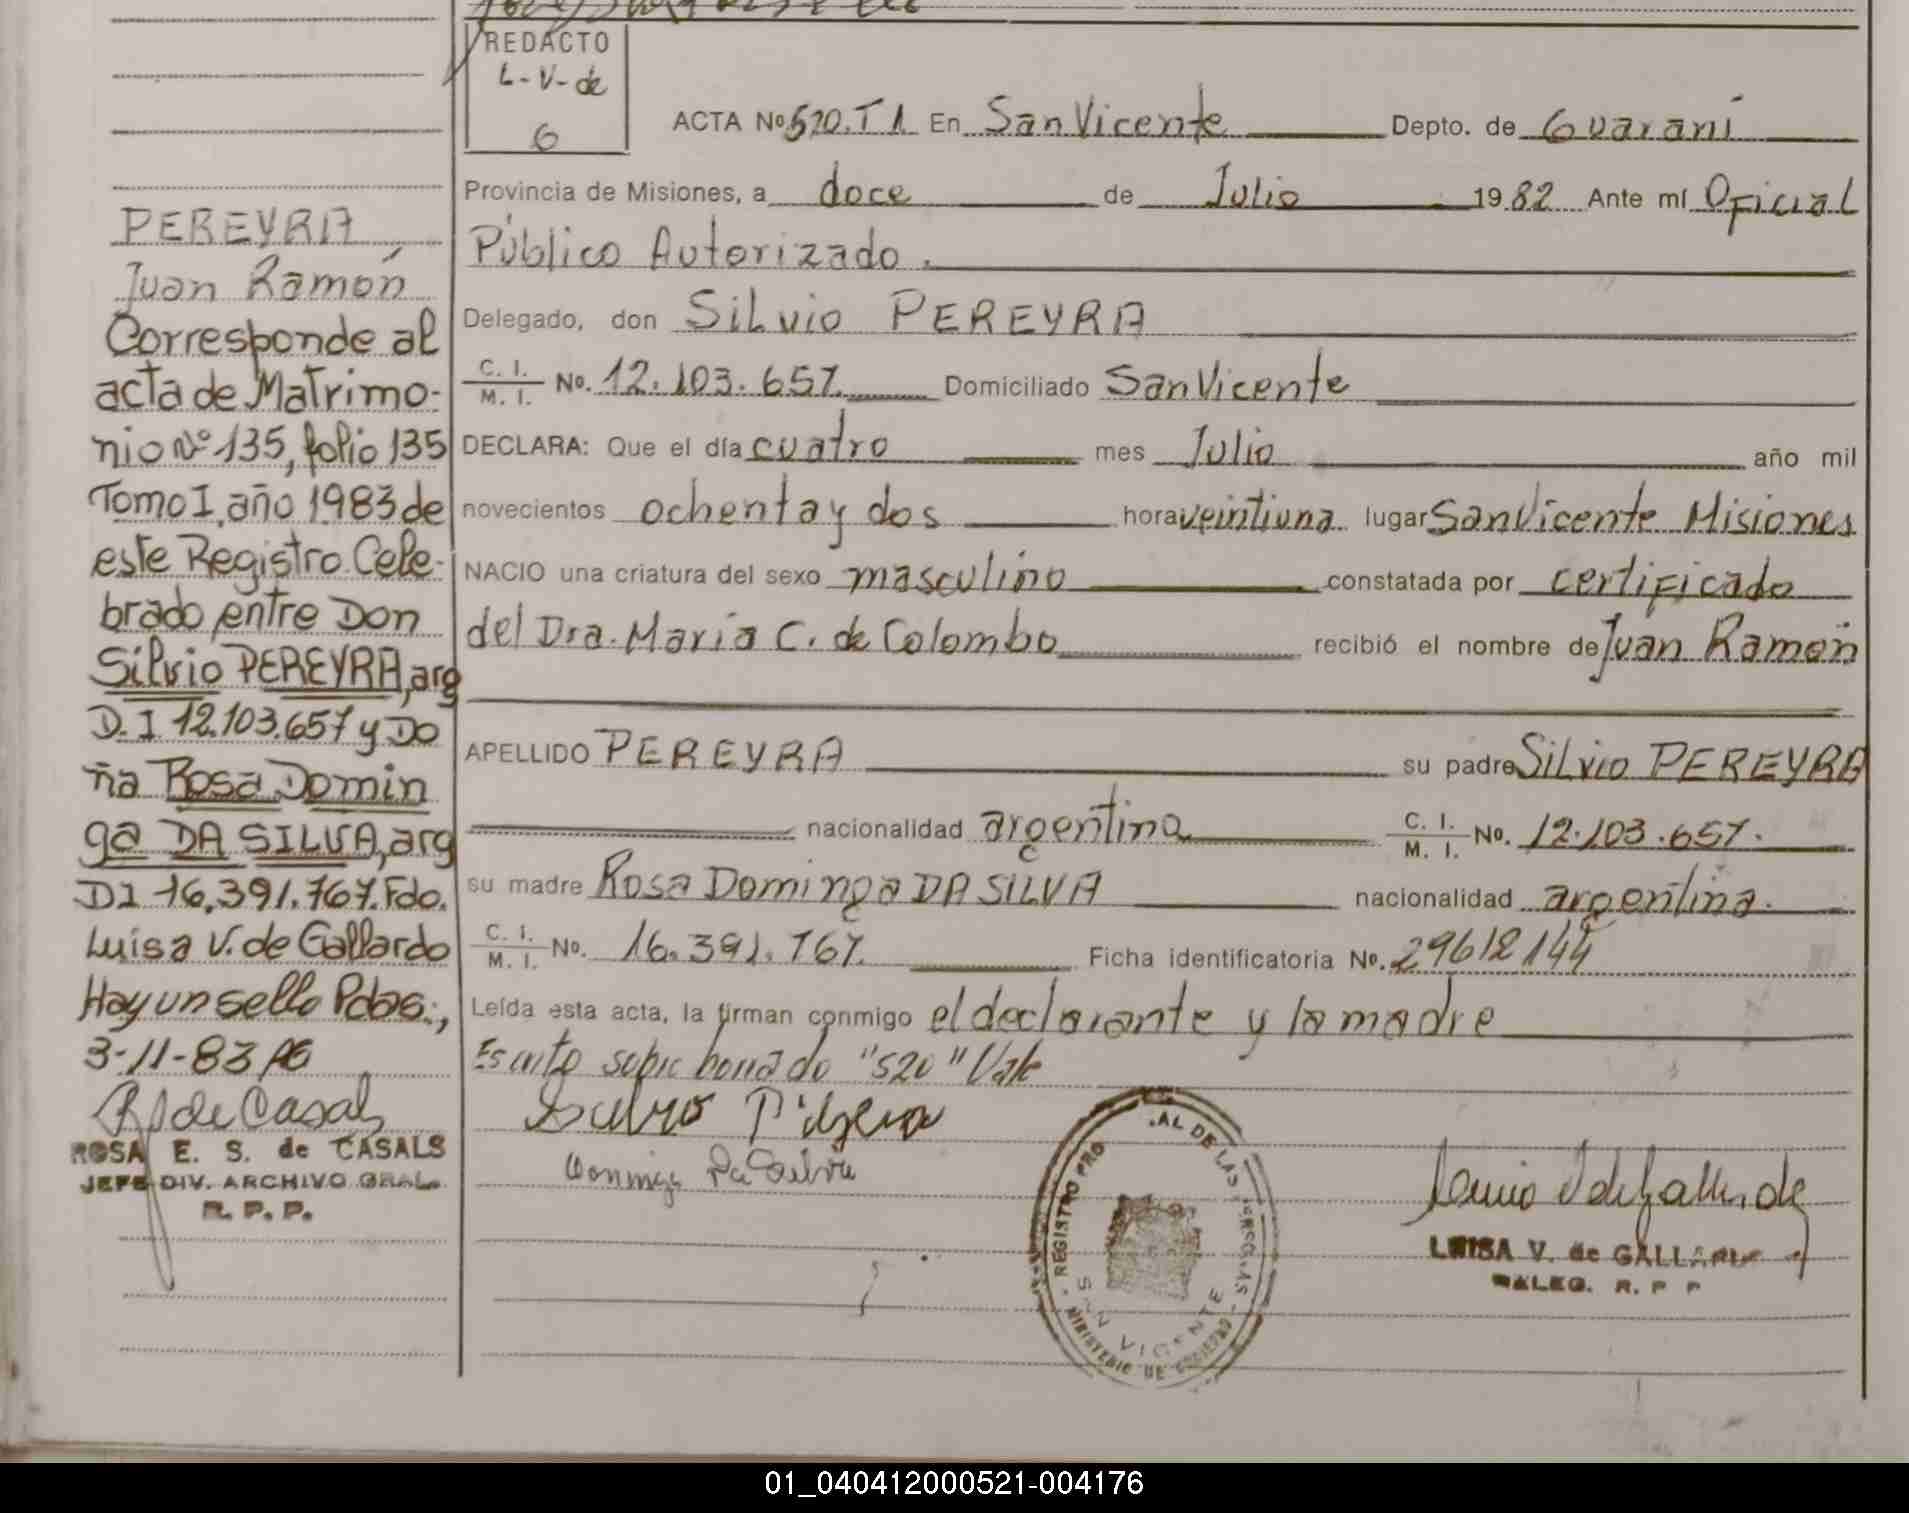 REDACTO
L-V-de
G
ACTA Nº 520.T1. En San Vicente Depto. de Guaraní
Provincia de Misiones, a doce de Julio 1982 Ante mí Oficial
Público Autorizado.
Delegado, don Silvio PEREYRA
C. I.
M. I. No. 12.103.657. Domiciliado San Vicente
DECLARA: Que el día cuatro mes Julio año mil
novecientos ochenta y dos hora veintiuna lugar San Vicente Misiones
NACIO una criatura del sexo masculino constatada por certificado
del Dra. María C. de Colombo recibió el nombre de Juan Ramón
APELLIDO PEREYRA su padre Silvio PEREYRA
nacionalidad argentina C. I.
M. I. No. 12.103.657.
su madre Rosa Dominga DA SILVA nacionalidad argentina.
C. I.
M. I. No. 16.391.767. Ficha identificatoria No. 29612144
Leída esta acta, la firman conmigo el declarante y la madre
Escrito sobre borrado "520" Vale
PEREYRA
Juan Ramón
Corresponde al
acta de Matrimo-
nio Nº 135, folio 135
Tomo I, año 1983 de
este Registro Cele-
brado entre Don
Silvio PEREYRA, arg
D.I 12.103.657 y Do
ña Rosa Domin
ga DA SILVA, arg
DI 16.391.767. Fdo.
Luisa V. de Gallardo
Hay un sello Pdas.,
3-11-83
RSdeCasals
ROSA E. S. de CASALS
JEFE DIV. ARCHIVO GRAL.
R. P. P.
REGISTRO PRO AL DE LAS PERSONAS
SAN VICENTE
MINISTERIO DE GOBIERNO
LUISA V. de GALLARDO
DALEG. R. P. P
01_040412000521-004176